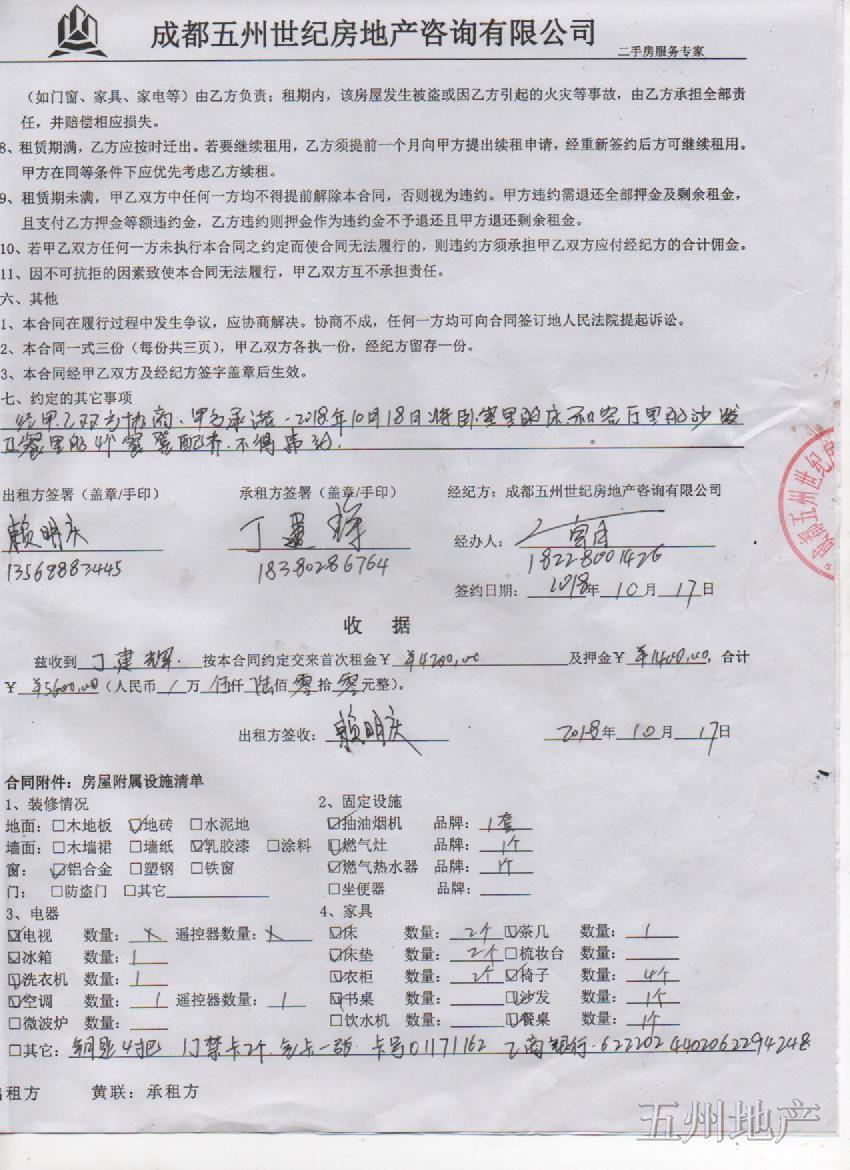 成都五州世纪房地产咨询有限公司
二手房服务专家
（如门窗、家具、家电等）由乙方负责；租期内，该房屋发生被盗或因乙方引起的火灾等事故，由乙方承担全部责
任，并赔偿相应损失。
8、租赁期满，乙方应按时迁出。若要继续租用，乙方须提前一个月向甲方提出续租申请，经重新签约后方可继续租用。
甲方在同等条件下应优先考虑乙方续租。
9、租赁期未满，甲乙双方中任何一方均不得提前解除本合同，否则视为违约。甲方违约需退还全部押金及剩余租金，
且支付乙方押金等额违约金，乙方违约则押金作为违约金不予退还且甲方退还剩余租金。
10、若甲乙双方任何一方未执行本合同之约定而使合同无法履行的，则违约方须承担甲乙双方应付经纪方的合计佣金。
11、因不可抗拒的因素致使本合同无法履行，甲乙双方互不承担责任。
六、其他
1、本合同在履行过程中发生争议，应协商解决。协商不成，任何一方均可向合同签订地人民法院提起诉讼。
2、本合同一式三份（每份共三页），甲乙双方各执一份，经纪方留存一份。
3、本合同经甲乙双方及经纪方签字盖章后生效。
七、约定的其它事项
经甲乙双方协商.甲方承诺.2018年10月18日将卧室里的床和客厅里的沙发
里的4个 配齐.不得
出租方签署（盖章/手印） 承租方签署（盖章/手印） 经纪方：成都五州世纪房地产咨询有限公司
赖明庆 丁建辉 经办人：
13568883445 18380286764 18228001426
签约日期：2018年10月17日
收 据
兹收到 丁建辉. 按本合同约定交来首次租金￥ ￥4200.00 及押金￥ ￥1400.00，合计
￥ ￥5600.00（人民币 / 万 伍仟 陆佰 零拾 零元整）。
出租方签收：赖明庆 2018年10月17日
合同附件：房屋附属设施清单
1、装修情况 2、固定设施
地面：□木地板 ☑地砖 □水泥地 ☑抽油烟机 品牌：1套
墙面：□木墙裙 □墙纸 ☑乳胶漆 □涂料 ☑燃气灶 品牌：1个
窗： ☑铝合金 □塑钢 □铁窗 ☑燃气热水器 品牌：1个
门： □防盗门 □其它 □坐便器 品牌：
3、电器 4、家具
☑电视 数量： 遥控器数量： ☑床 数量：2个 ☑茶几 数量：1
☑冰箱 数量：1 ☑床垫 数量：2个 □梳妆台 数量：
☑洗衣机 数量：1 ☑衣柜 数量：2个 ☑椅子 数量：4个
☑空调 数量：1 遥控器数量：1 ☑书桌 数量： ☑沙发 数量：1个
□微波炉 数量： □饮水机 数量： ☑餐桌 数量：1个
□其它：钥匙4把 门禁卡2个. 气卡一张 卡号01171162 工商银行.6222024402062294248
出租方 黄联：承租方
五州地产
成都五州世纪房